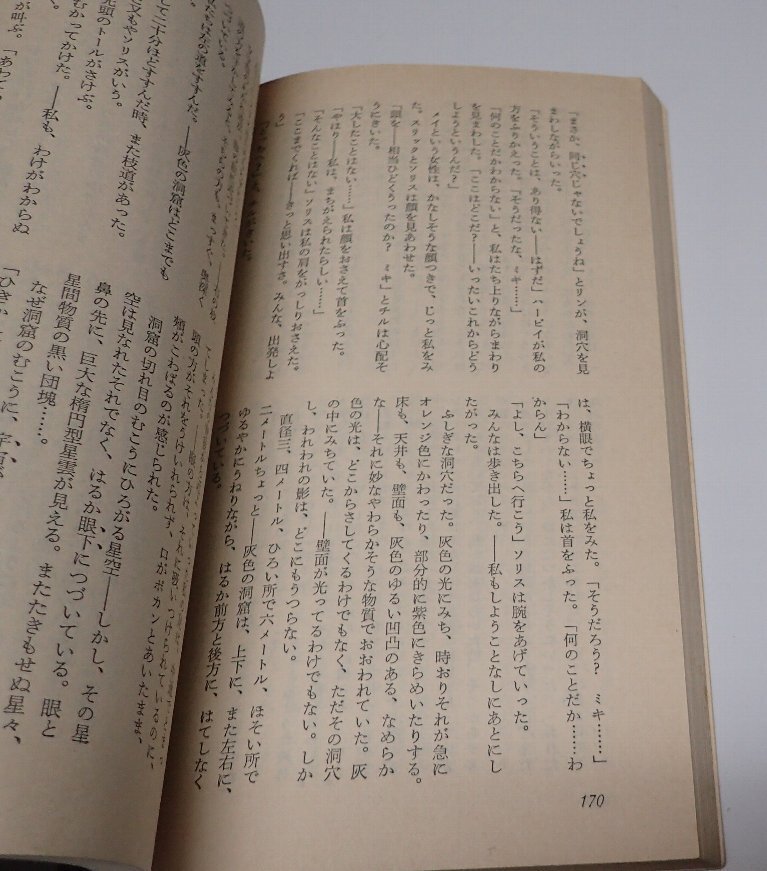 「まさか、同じ穴じゃないでしょうね」とリンが、洞穴を見
まわしながらいった。
「そういうことは、あり得ない——はずだ」ハービイが私の
方をふりかえった。「そうだったな、ミキ……」
「何のことだかわからない」と、私はたち上りながらまわり
を見まわした。「ここはどこだ？——いったいこれからどう
しようというんだ？」
メイという女性は、かなしそうな顔つきで、じっと私をみ
た。スリックとソリスは顔を見あわせた。
「頭を——相当ひどくうったのか？　ミキ」とチルは心配そ
うにきいた。
「大したことはない……」私は顔をおさえて首をふった。
「やはり——私は、まちがえられたらしい……」
「そんなことはない」ソリスは私の肩をがっしりおさえた。
「ここまでくれば——きっと思い出すさ。みんな、出発しよ
う」
は、横眼でちょっと私をみた。「そうだろう？　ミキ……」
「わからない……」私は首をふった。「何のことだか……わ
からん」
「よし、こちらへ行こう」ソリスは腕をあげていった。
みんなは歩き出した。——私もしようことなしにあとにし
たがった。
ふしぎな洞穴だった。灰色の光にみち、時おりそれが急に
オレンジ色にかわったり、部分的に紫色にきらめいたりする。
床も、天井も、壁面も、灰色のゆるい凹凸のある、なめらか
な——それに妙なやわらかそうな物質でおおわれていた。灰
色の光は、どこからさしてくるわけでもなく、ただその洞穴
の中にみちていた。——壁面が光ってるわけでもない。しか
し、われわれの影は、どこにもうつらない。
直径三、四メートル、ひろい所で六メートル、ほそい所で
二メートルちょっと——灰色の洞窟は、上下に、また左右に、
ゆるやかにうねりながら、はるか前方と後方に、はてしなく
つづいている。
170
の道をすすんだ。——灰色の洞窟はどこまでも
て二十分ほどすすんだ時、また枝道があった。
又もやソリスがいう。
頭のトールがさけぶ。
むかってかけた。——私も、わけがわからぬ
く。
が叫ぶ。「あわて
頭の方がそれをうけいれられず、口がポカンとあいたまま、
頬がこわばるのが感じられた。
洞窟の切れ目のむこうにひろがる星空——しかし、その星
空は見なれたそれでなく、はるか眼下につづいている。眼と
鼻の先に、巨大な楕円型星雲が見える。またたきもせぬ星々、
星間物質の黒い団塊……。
なぜ洞窟のむこうに、宇宙
「ひさか